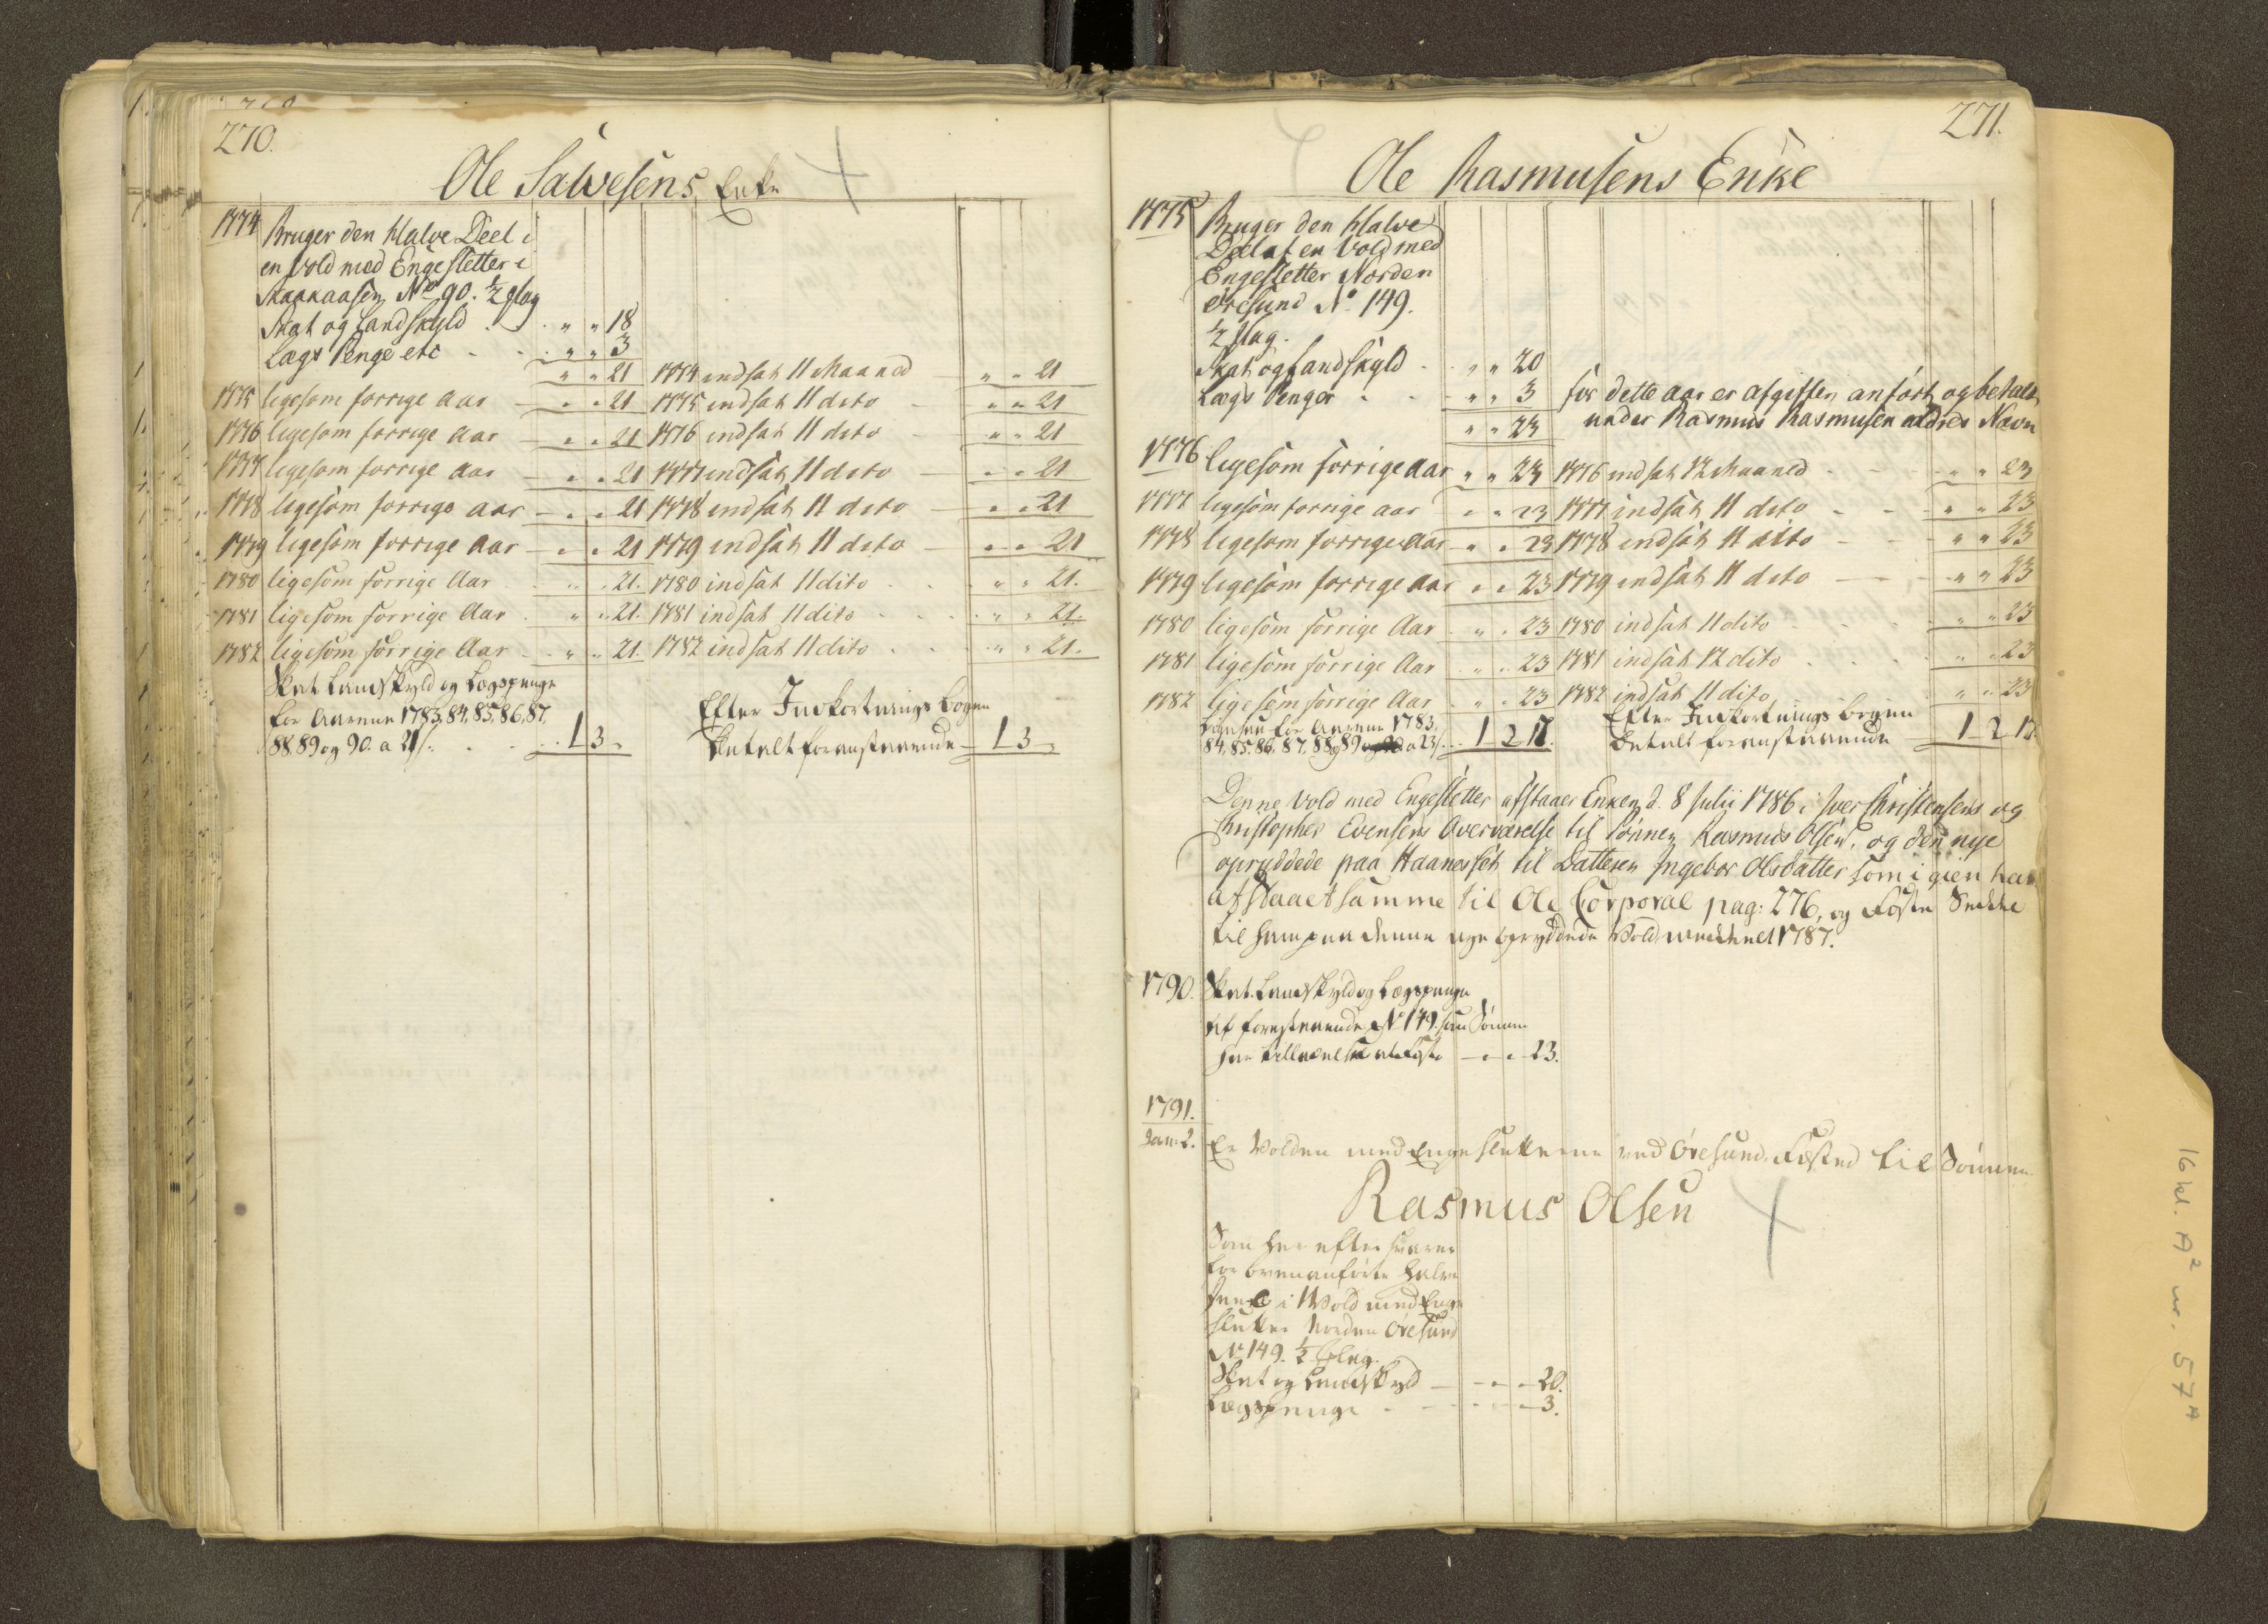 270.
Ole Salvesens Enke
1774 Bruger den Halve Deel i
en Vold med Engesletter i
Skaakaasen No 90. 1/2 flag
Skat og Landskyld . . " " 18
Lægs Penge etc - - " " 3
" " 21 1774 indsat 11 Maaned - " " 21
1775 ligesom forrige Aar - " " 21 1775 indsat 11 dito - " " 21
1776 ligesom forrige Aar - " " 21 1776 indsat 11 dito - " " 21
1777 ligesom forrige Aar - " " 21 1777 indsat 11 dito - " " 21
1778 ligesom forrige Aar - " " 21 1778 indsat 11 dito - " " 21
1779 ligesom forrige Aar - " " 21 1779 indsat 11 dito - " " 21
1780 ligesom forrige Aar . " " 21. 1780 indsat 11 dito . . " " 21.
1781 ligesom forrige Aar . " " 21. 1781 indsat 11 dito . . " " 21.
1782 ligesom forrige Aar . " " 21. 1782 indsat 11 dito . . " " 21.
Skat Landskyld og Lægspenge
for Aarene 1783, 84, 85, 86, 87,
88. 89 og 90. a 21 s. . . 1 3 "
Efter Indkortnings Bogen
Betalt foranstaaende - 1 3 "
271.
Ole Rasmusens Enke
1775 Bruger den Halve
Deel af en Vold med
Engesletter Norden
Øresund No. 149.
1/2 flag.
Skat og Landskyld . . " " 20
Lægs Penger . . " " 3 for dette Aar er Afgiften anført og betalt
" " 23 under Rasmus Rasmusen ældres Navn
1776 ligesom forrige Aar " " 23 1776 indsat 12 Maaned - - " " 23
1777 ligesom forrige aar " " 23 1777 indsat 11 dito - - " " 23
1778 ligesom forrige Aar " " 23 1778 indsat 11 dito - - " " 23
1779 ligesom forrige Aar " " 23 1779 indsat 11 dito - - " " 23
1780 ligesom forrige Aar . " " 23 1780 indsat 11 dito . . " " 23
1781 ligesom forrige Aar . " " 23 1781 indsat 12 dito . . " " 23
1782 ligesom forrige Aar . " " 23 1782 indsat 11 dito . . " " 23
Ligesaa for Aarene 1783,
84, 85. 86, 87, 88 og 89 a 23 s. . . 1 2 17.
Efter Indkortnings bogen
Betalt foranstaaende 1 2 17.
Denne Vold med Engesletter afstaaer Enken d. 8 Julii 1786 i Iver Christensens og
Christopher Evensens Overværelse til Sønnen Rasmus Olsen, og den nye
opryddede paa Haanesset til Datteren Ingebor Olsdatter som igien har
afstaaet samme til Ole Corporal pag: 276, og Fæste Seddel
til ham paa denne nye opryddede Vold meddeelt 1787.
1790. Skat. Landskyld og Lægspenge
af forestaaende No 149. som Sønnen
har tilladelse at Fæste - " " 23.
1791.
Jan: 2. Er Volden med Engesletterne ved Øresund Fæsted til Sønnen
Rasmus Olsen
Som her efter svarer
for ovenanførte halve
Deel i 1 Vold med Enge
sletter Norden Øresund
No 149. 1/2 flag.
Skat og Landskyld - - " " 20.
Lægspenge - - - " " 3.
16 kl. A² nr. 57 A